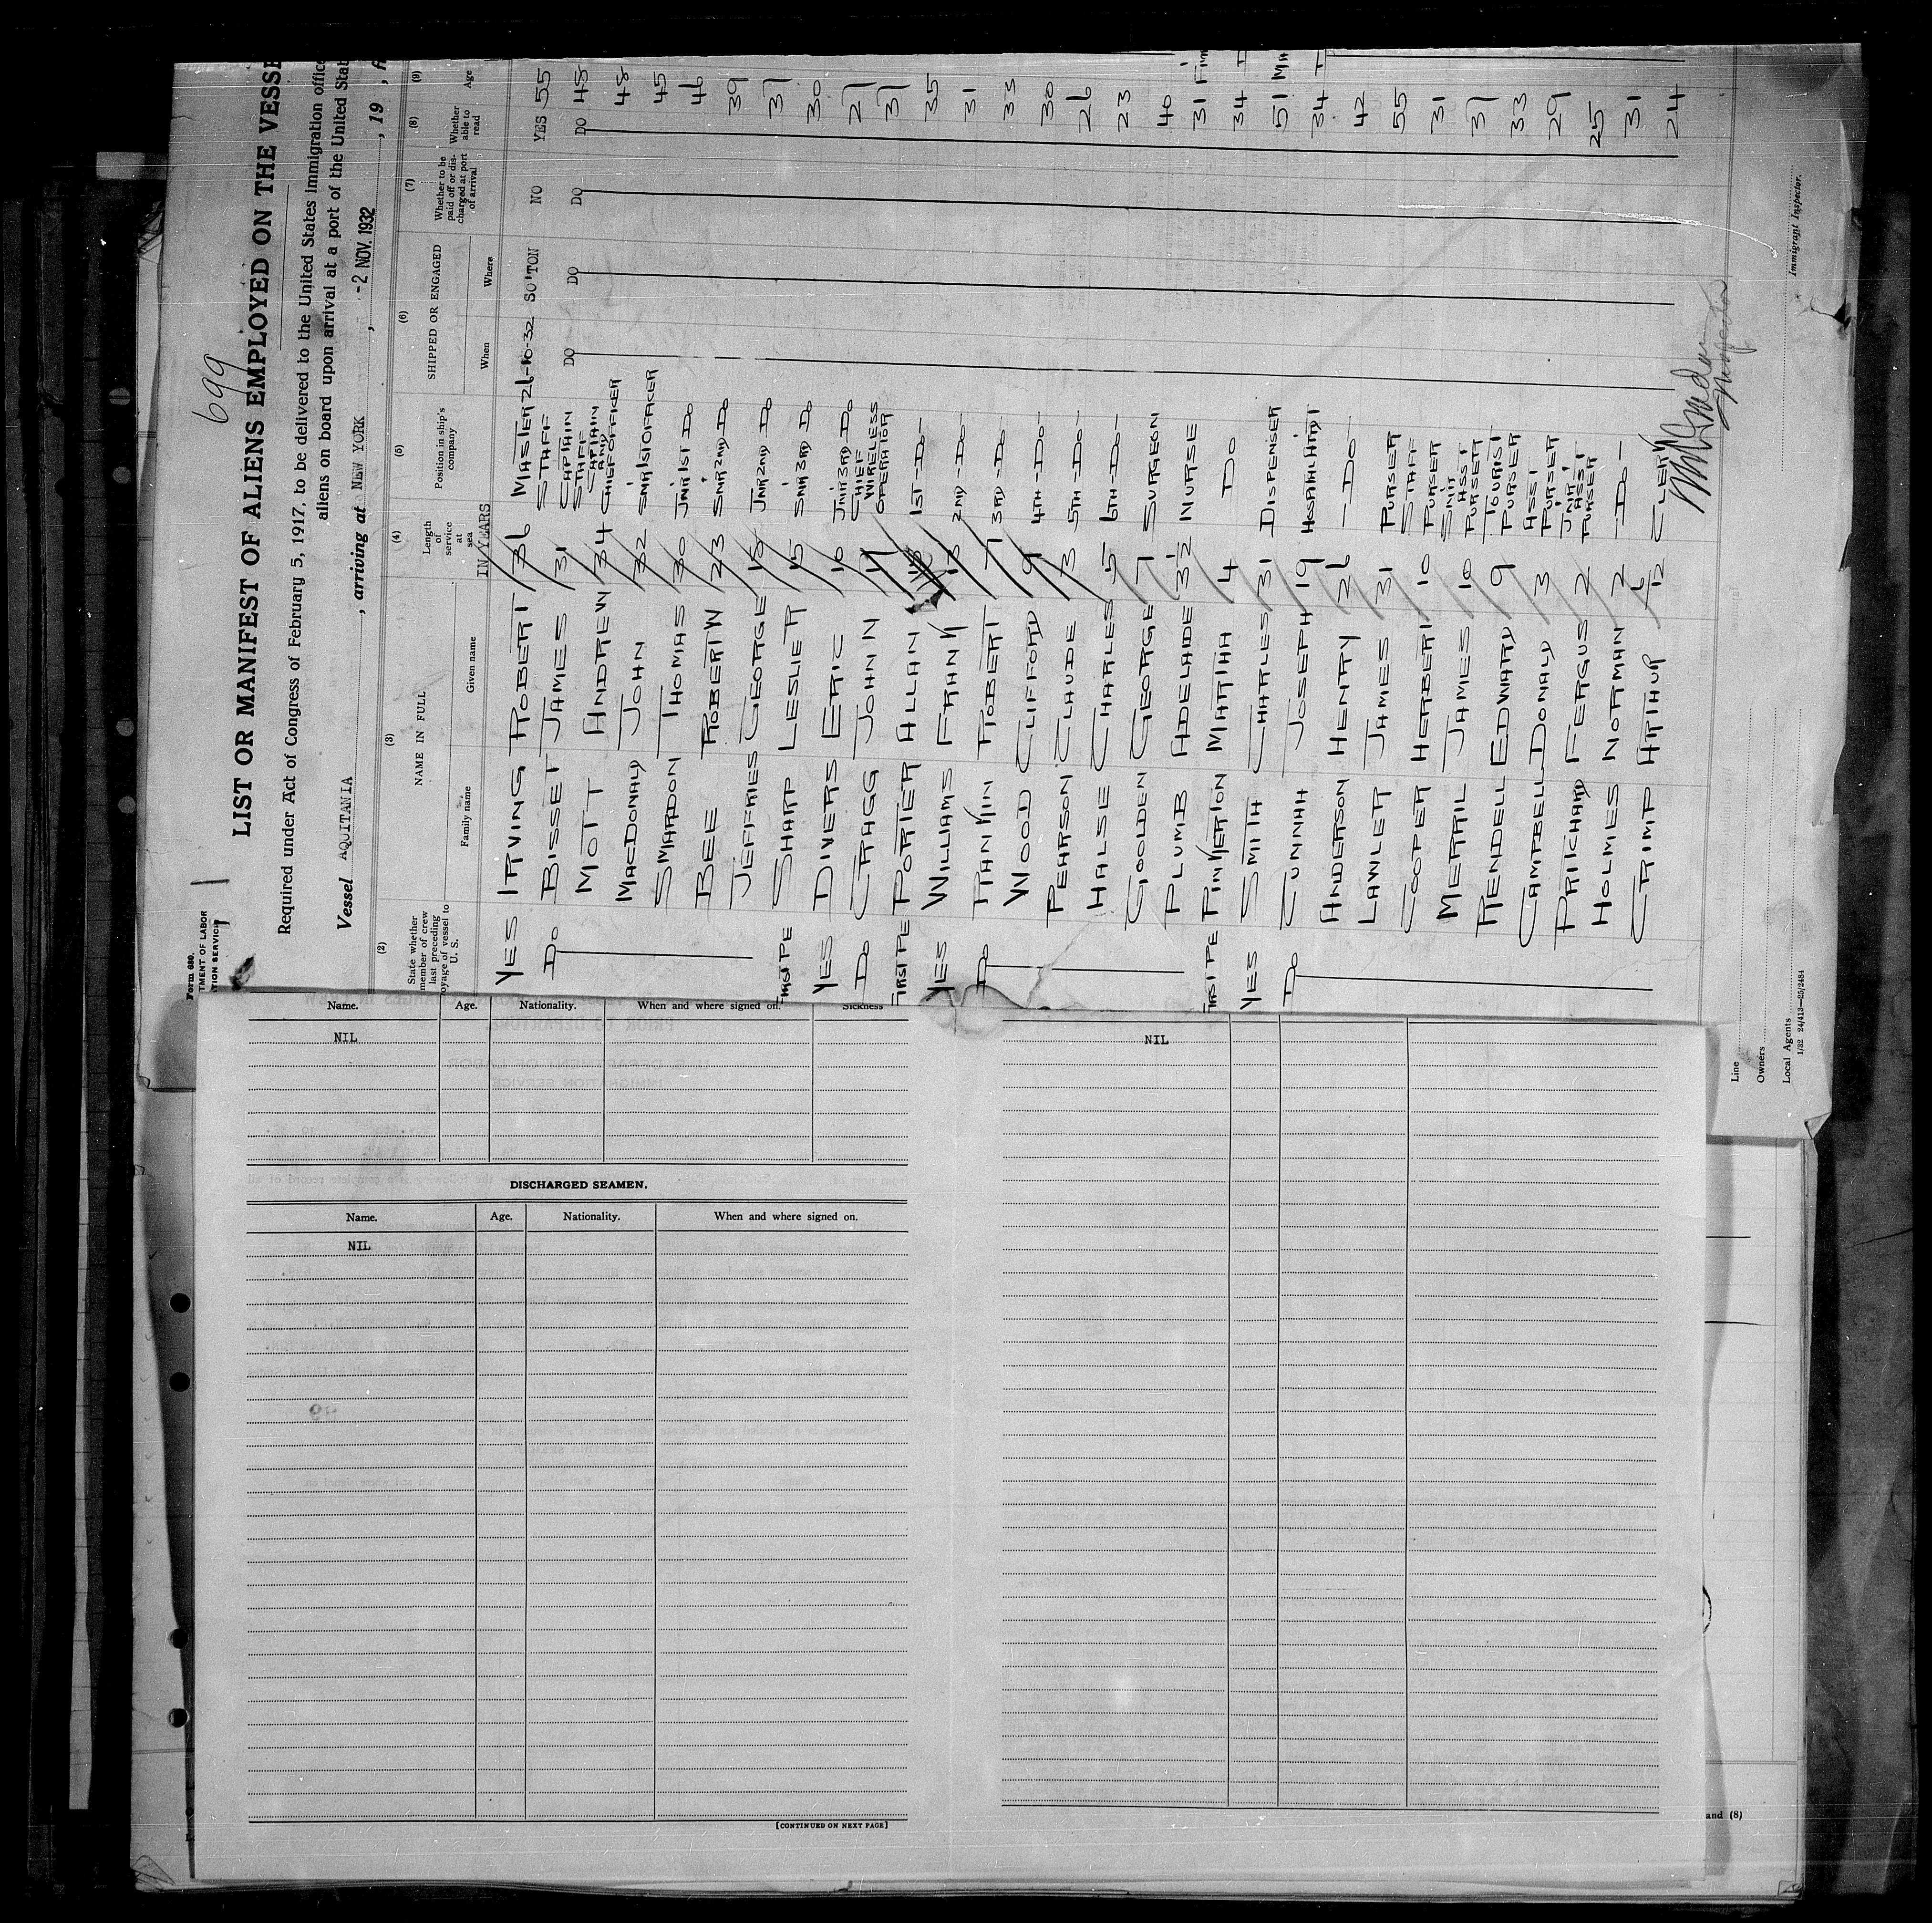 699
Form 680.
TMENT OF LABOR
TION SERVICE
LIST OR MANIFEST OF ALIENS EMPLOYED ON THE VESSE
Required under Act of Congress of February 5, 1917, to be delivered to the United States immigration office
aliens on board upon arrival at a port of the United Stat
Vessel AQUITANIA, arriving at NEW YORK, -2 NOV. 1932, 19
(2) (3) (4) (5) (6) (7) (8) (9)
State whether member of crew last preceding voyage of vessel to U. S.
NAME IN FULL
Family name Given name
Length of service at sea
Position in ship's company
SHIPPED OR ENGAGED
When Where
Whether to be paid off or discharged at port of arrival
Whether able to read
Age
IN YEARS
YES IRVING ROBERT 36 MASTER 26-10-32 SO'TON NO YES 55
DO BISSET JAMES 31 STAFF CAPTAIN DO DO DO DO 48
MOTT ANDREW 34 STAFF CAPTAIN AND CHIEF OFFICER 48
MACDONALD JOHN 32 SNR 1ST OFFICER 45
SMARDON THOMAS 30 JNR 1ST DO 46
BEE ROBERT W 23 SNR 2ND DO 39
JEFFRIES GEORGE JNR 2ND DO 37
FIRST TRIP SHARP LESLIE R 15 SNR 3RD DO 30
YES DIVERS ERIC 10 JNR 3RD DO 27
DO CRAGG JOHN N CHIEF WIRELESS OPERATOR 37
FIRST TRIP PORTER ALLAN 1ST -DO- 35
YES WILLIAMS FRANK 13 2ND -DO- 31
DO RANKIN ROBERT 7 3RD -DO- 33
WOOD CLIFFORD 9 4TH -DO- 30
PEARSON CLAUDE 3 5TH -DO- 26
HALSE CHARLES 5 6TH -DO- 23
GOOLDEN GEORGE 7 SURGEON 40
PLUMB ADELAIDE 3½ NURSE 31
FIRST TRIP PINKERTON MARTHA 4 DO 34
YES SMITH CHARLES 31 DISPENSER 51
DO CUNNAH JOSEPH 19 HOSPITAL ATTD'T 34
ANDERSON HENRY 26 -DO- 42
LAWLER JAMES 31 PURSER 55
COOPER HERBERT 10 STAFF PURSER 31
MERRIL JAMES 10 SNR ASST PURSER 37
RENDELL EDWARD 9 TOURIST PURSER 33
CAMPBELL DONALD 3 ASST PURSER 29
PRITCHARD FERGUS 2 JNR ASST PURSER 25
HOLMES NORMAN 2 -DO- 31
CRIMP ARTHUR 6/12 CLERK 24
Immigrant Inspector.
Line
Owners
Local Agents
1/32 24/413—25/2484
Name. Age. Nationality. When and where signed on. Sickness
NIL
NIL
DISCHARGED SEAMEN.
Name. Age. Nationality. When and where signed on.
NIL
[CONTINUED ON NEXT PAGE]
and (8)